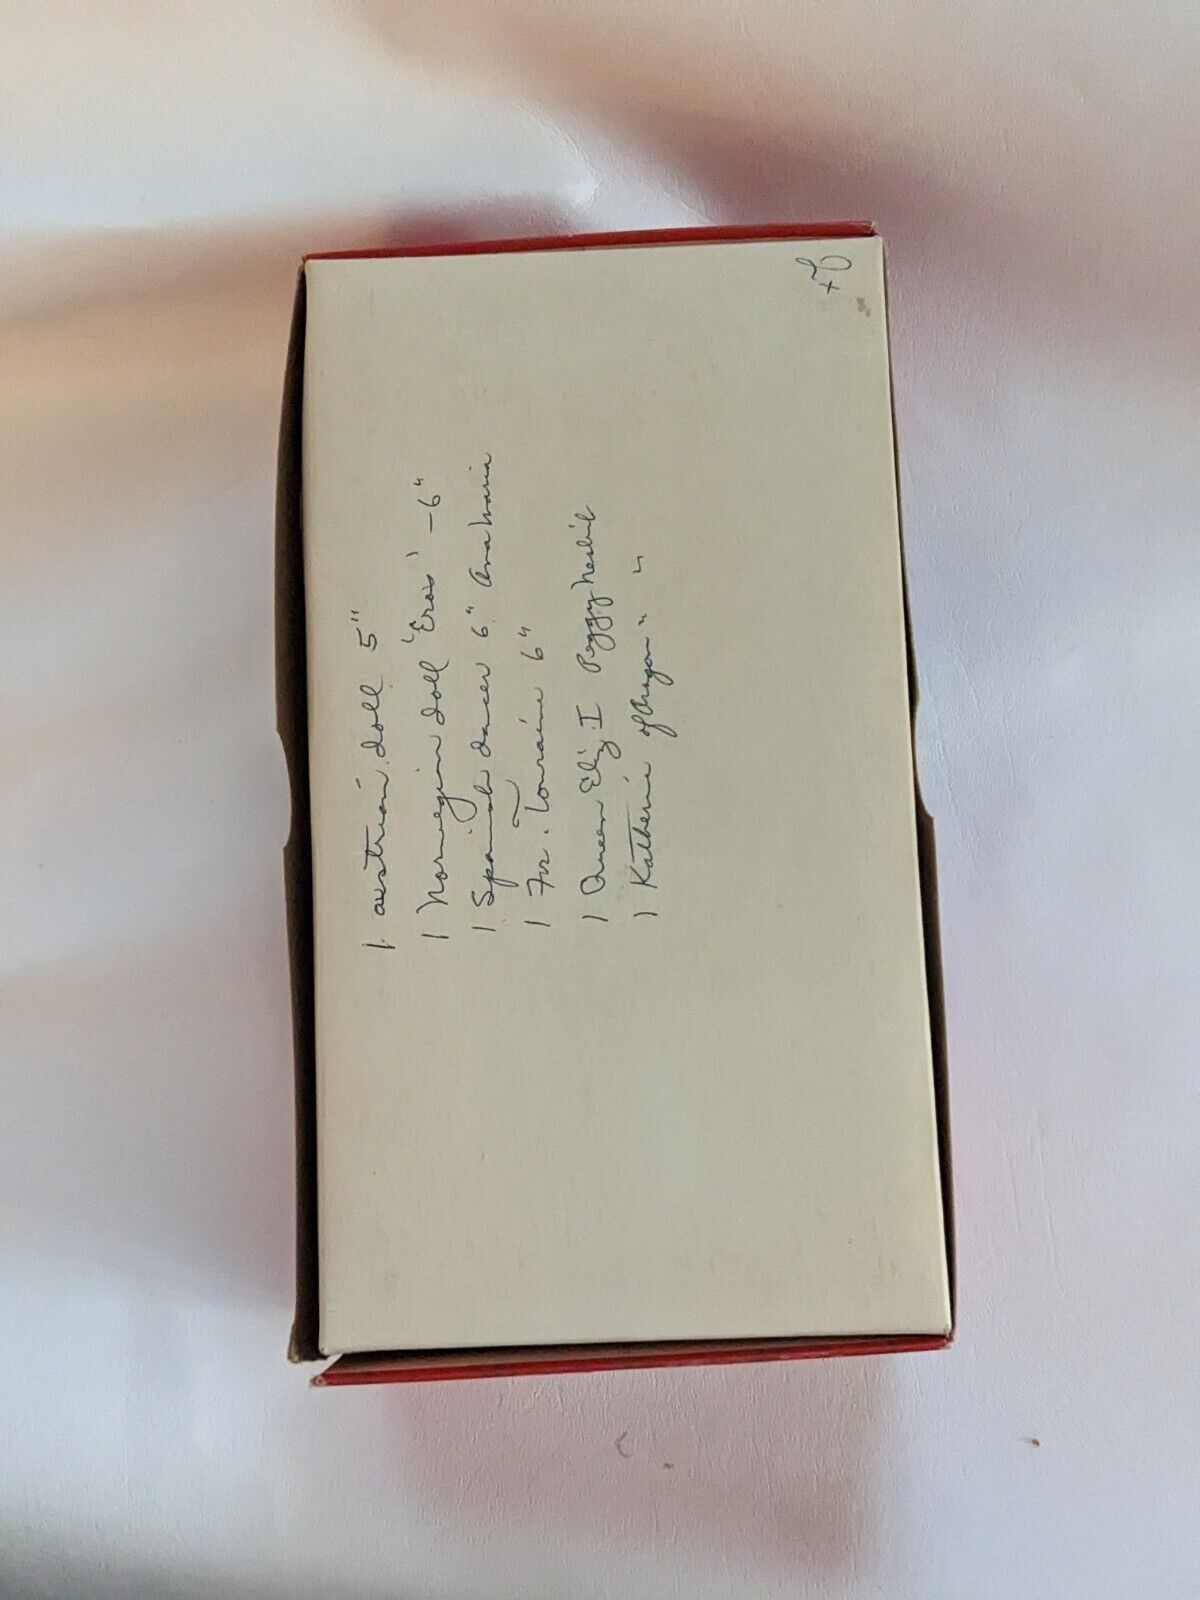 1 austrian doll 5"
1 Norwegian doll 'Eros' - 6"
1 Spanish dancer 6" Ana Maria
1 Fr. Touraine 6"
1 Queen Eliz I Peggy Nesbit
1 Katherine of Aragon " "